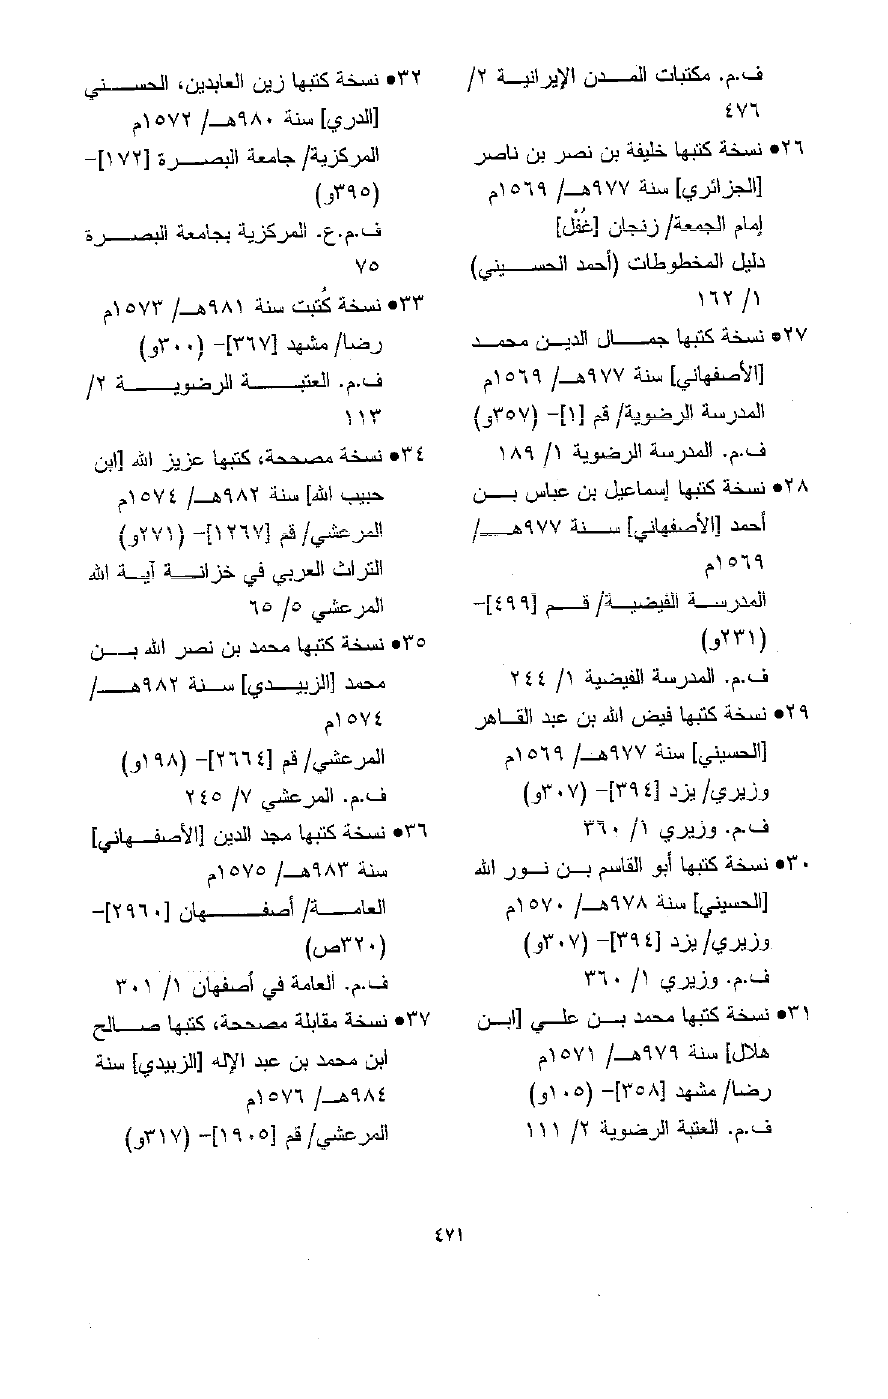 ف.م. مكتبات المدن الإيرانية ٢/
٤٧٦
٢٦• نسخة كتبها خليفة بن نصر بن ناصر
[الجزائري] سنة ٩٧٧هـ/ ١٥٦٩م
إمام الجمعة/ زنجان [غُفْل]
دليل المخطوطات (أحمد الحسيني)
١/ ١٦٢
٢٧• نسخة كتبها جمال الدين محمد
[الأصفهاني] سنة ٩٧٧هـ/ ١٥٦٩م
المدرسة الرضوية/ قم [١]- (٣٥٧و)
ف.م. المدرسة الرضوية ١/ ١٨٩
٢٨• نسخة كتبها إسماعيل بن عباس بن
أحمد [الأصفهاني] سنة ٩٧٧هـ/
١٥٦٩م
المدرسة الفيضية/ قم [٤٩٩]-
(٢٣١و)
ف.م. المدرسة الفيضية ١/ ٢٤٤
٢٩• نسخة كتبها فيض الله بن عبد القاهر
[الحسيني] سنة ٩٧٧هـ/ ١٥٦٩م
وزيري/ يزد [٣٩٤]- (٣٠٧و)
ف.م. وزيري ١/ ٣٦٠
٣٠• نسخة كتبها أبو القاسم بن نور الله
[الحسيني] سنة ٩٧٨هـ/ ١٥٧٠م
وزيري/ يزد [٣٩٤]- (٣٠٧و)
ف.م. وزيري ١/ ٣٦٠
٣١• نسخة كتبها محمد بن علي [ابن
هلال] سنة ٩٧٩هـ/ ١٥٧١م
رضا/ مشهد [٣٥٨]- (١٠٥و)
ف.م. العتبة الرضوية ٢/ ١١١
٣٢• نسخة كتبها زين العابدين، الحسني
[الدري] سنة ٩٨٠هـ/ ١٥٧٢م
المركزية/ جامعة البصرة [١٧٢]-
(٣٩٥و)
ف.م.ع. المركزية بجامعة البصرة
٧٥
٣٣• نسخة كُتبت سنة ٩٨١هـ/ ١٥٧٣م
رضا/ مشهد [٣٦٧]- (٣٠٠و)
ف.م. العتبة الرضوية ٢/
١١٣
٣٤• نسخة مصححة، كتبها عزيز الله [ابن
حبيب الله] سنة ٩٨٢هـ/ ١٥٧٤م
المرعشي/ قم [١٢٦٧]- (٢٧١و)
التراث العربي في خزانة آية الله
المرعشي ٥/ ٦٥
٣٥• نسخة كتبها محمد بن نصر الله بن
محمد [الزبيدي] سنة ٩٨٢هـ/
١٥٧٤م
المرعشي/ قم [٢٦٦٤]- (١٩٨و)
ف.م. المرعشي ٧/ ٢٤٥
٣٦• نسخة كتبها مجد الدين [الأصفهاني]
سنة ٩٨٣هـ/ ١٥٧٥م
العامة/ أصفهان [٢٩٦٠]-
(٣٢٠ص)
ف.م. العامة في أصفهان ١/ ٣٠١
٣٧• نسخة مقابلة مصححة، كتبها صالح
ابن محمد بن عبد الإله [الزبيدي] سنة
٩٨٤هـ/ ١٥٧٦م
المرعشي/ قم [١٩٠٥]- (٣١٧و)
٤٧١